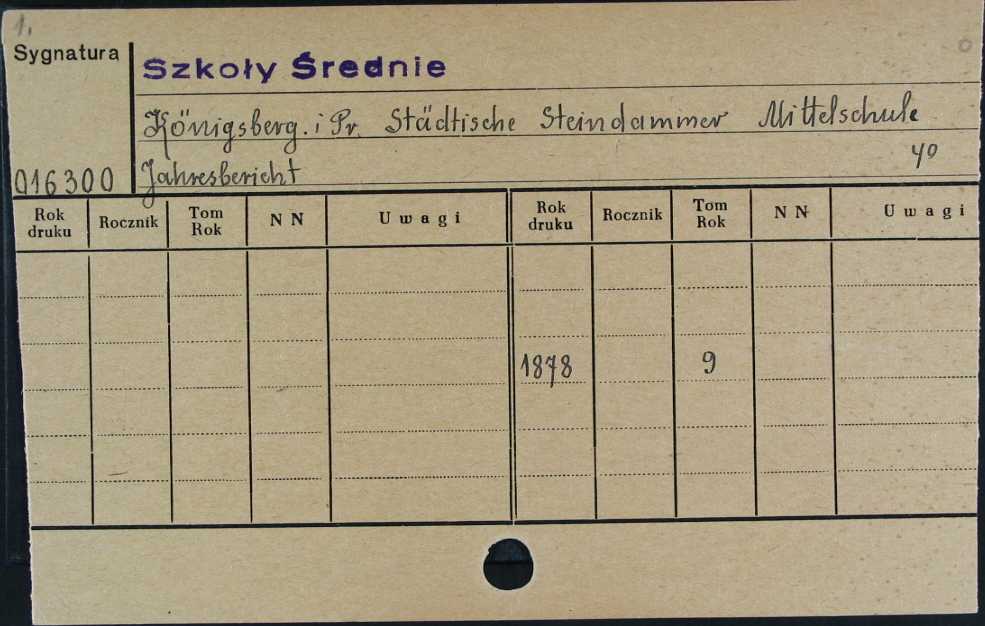 1.
Sygnatura
Szkoły Średnie
Königsberg. i Pr. Städtische Steindammer Mittelschule
4º
016300
Jahresbericht
Rok druku Rocznik Tom Rok N N Uwagi Rok druku Rocznik Tom Rok N N Uwagi
1878 9